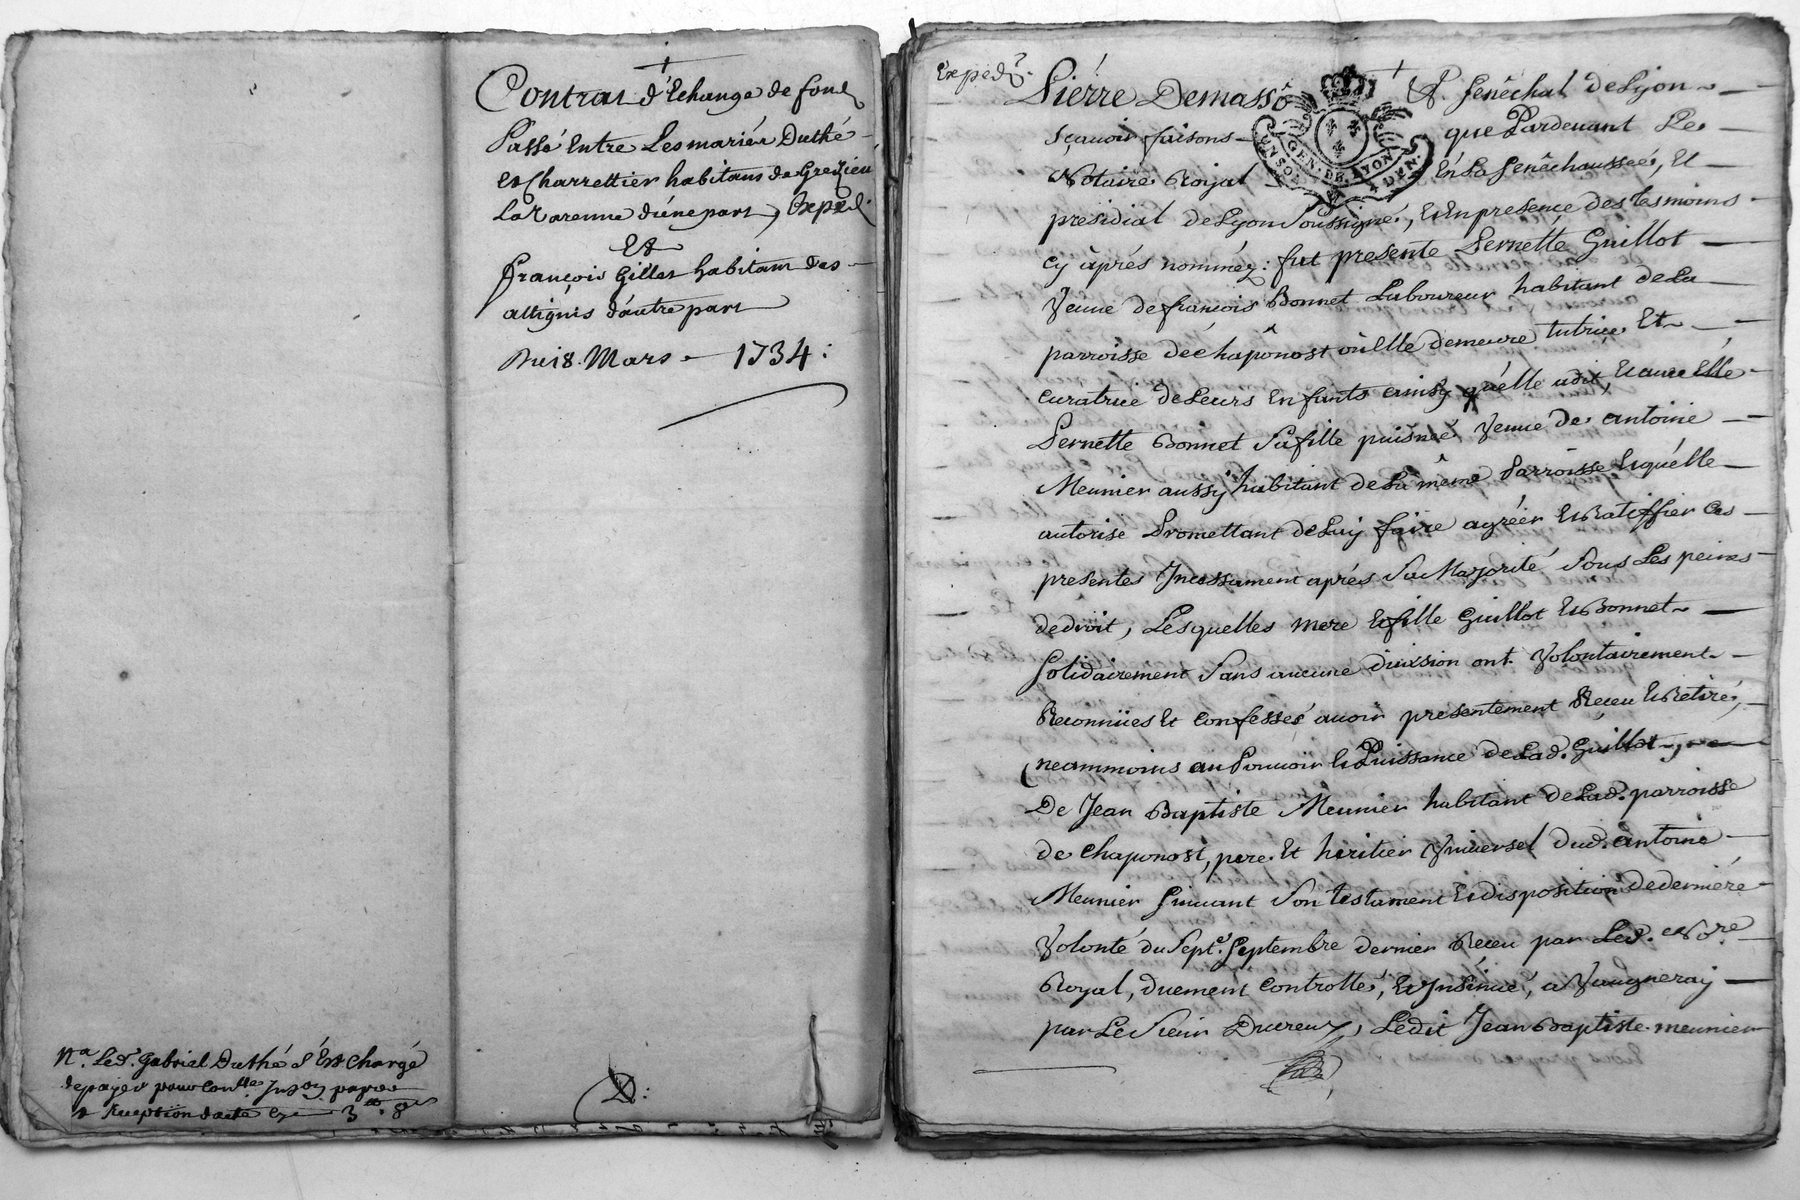 Contrat d'Echange de fond
Passé Entre Les mariés Duthé
et Charrettier habitans de Grezieu
La Varenne d'une part, Exped.
Et
françois Gillet habitant des
attignis d'autre part
Du 18. Mars 1734:
Na. Led. Gabriel Duthé s'Est chargé
depayer pour Conlle. Insōn papier
& reception dacte cy 3# 8s
Exped.
Pierre Demasso & senêchal de Lyon
sçauoir faisons que Pardeuant Le
Notaire Royal En La senêchaussée, Et
GEN. DE LYON
présidial de Lyon soussigné, Et En presence des tesmoins
cy âprés nomméz: fut presente Pernette Guillot
Veuue de françois Bonnet Laboureur habitant de La
parroisse de châponost où Elle demeure tutrice Et
curatrice de Leurs Enfants ainsy qu'élle a dit, Et auec Elle
Pernette Bonnet sa fille puisnée Veuue de antoine
Meunier aussy habitant de La même Parroisse Et qu'élle
autorise Promettant de Luy faire agréér Et Ratiffier Ces
presentes Incessament aprés sa Majorité sous Les peines
de droit, Lesquelles mere Et fille Guillot Et Bonnet
solidairement sans aucune diuision ont Volontairement
Reconnües Et confessés auoir présentement Receu Et Retiré,
neammoins au Pouuoir Et Puissance de Lad. Guillot,
De Jean Baptiste Meunier habitant de Lad. parroisse
de chaponost, pere Et héritier Vniuersel dud. antoine
Meunier suiuant son testament Et disposition de derniére
Volonté du sept.e septembre dernier Receu par Led. Nore.
Royal, duement Controllé, Et Insinué, a Vaugneray
par Le sieur Ducreux, Ledit Jean Baptiste meunier